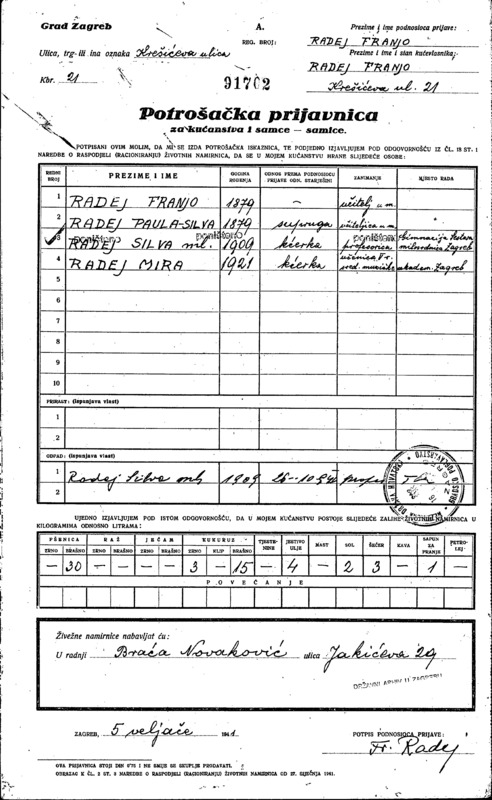 Grad Zagreb
A.
Prezime i ime podnosioca prijave:
REG. BROJ:
RADEJ FRANJO
Ulica, trg ili ina oznaka Krešićeva ulica
Prezime i ime i stan kućevlasnika:
RADEJ FRANJO
Kbr. 21
91702
Krešićeva ul. 21
Potrošačka prijavnica
za kućanstva i samce – samice.
POTPISANI OVIM MOLIM, DA MI SE IZDA POTROŠAČKA ISKAZNICA, TE PODJEDNO IZJAVLJUJEM POD ODGOVORNOŠĆU IZ ČL. 18 ST. 1
NAREDBE O RASPODJELI (RACIONIRANJU) ŽIVOTNIH NAMIRNICA, DA SE U MOJEM KUĆANSTVU HRANE SLIJEDEĆE OSOBE:
REDNI BROJ PREZIME I IME GODINA ROĐENJA ODNOS PREMA PODNOSIOCU PRIJAVE ODN. STARJEŠINI ZANIMANJE MJESTO RADA
1 RADEJ FRANJO 1879 – učitelj u m.
2 RADEJ PAULA-SILVA 1879 supruga učiteljica u m. "
3 RADEJ SILVA ml. 1909 kćerka profesorica
poništeno poništeno poništeno
4 RADEJ MIRA 1921 kćerka učenica akadem. Zagreb
5
6
7
8
9
10
PRIRAST: (ispunjava vlast)
1
2
OTPAD: (ispunjava vlast)
1 Radej Silva ml. 1909
2
UJEDNO IZJAVLJUJEM POD ISTOM ODGOVORNOŠĆU, DA U MOJEM KUĆANSTVU POSTOJE SLIJEDEĆE ZALIHE ŽIVOTNIH NAMIRNICA U
KILOGRAMIMA ODNOSNO LITRAMA:
PŠENICA RAŽ JEČAM KUKURUZ TJESTENINE JESTIVO ULJE MAST SOL ŠEĆER KAVA SAPUN ZA PRANJE PETROLEJ
ZRNO BRAŠNO ZRNO BRAŠNO ZRNO BRAŠNO ZRNO KLIP BRAŠNO
– 30 – – – – 3 – 15 – 4 – 2 3 – 1 –
POVEĆANJE
Živežne namirnice nabavljat ću:
U radnji Braća Novaković ulica Jakićeva 29
DRŽAVNI ARHIV U ZAGREBU
ZAGREB, 5 veljače 1941
POTPIS PODNOSIOCA PRIJAVE:
Fr. Radej
OVA PRIJAVNICA STOJI DIN 0'75 I NE SMIJE SE SKUPLJE PRODAVATI.
OBRAZAC K ČL. 3 ST. 3 NAREDBE O RASPODJELI (RACIONIRANJU) ŽIVOTNIH NAMIRNICA OD 27. SIJEČNJA 1941.